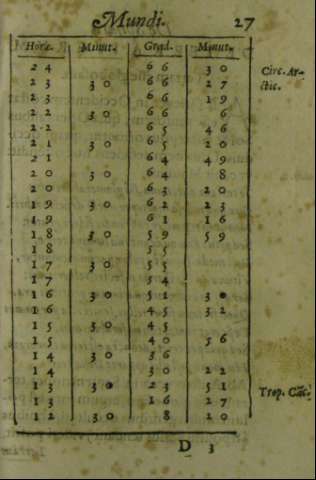 Mundi. 27
Horæ. Minut. Grad. Minut.
24 66 30 Circ. Ar-
23 30 66 27 ctic.
23 66 19
22 30 66 6
22 65 46
21 30 65 20
21 64 49
20 30 64 8
20 63 20
19 30 62 23
19 61 16
18 30 59 59
18 55
17 30 55
17 54
16 30 51 30
16 45 32
15 30 45
15 40 56
14 30 36
14 30 22
13 30 23 51 Trop. Cāc.
13 16 27
12 30 8 20
D 3